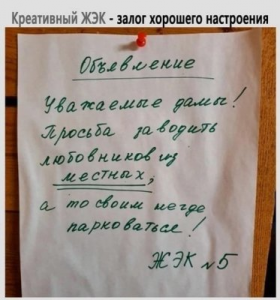 Креативный ЖЭК - залог хорошего настроения
Объевление
Уважаемые дамы!
Просьба заводить
любовников из
местных,
а то своим негде
парковаться!
ЖЭК №5